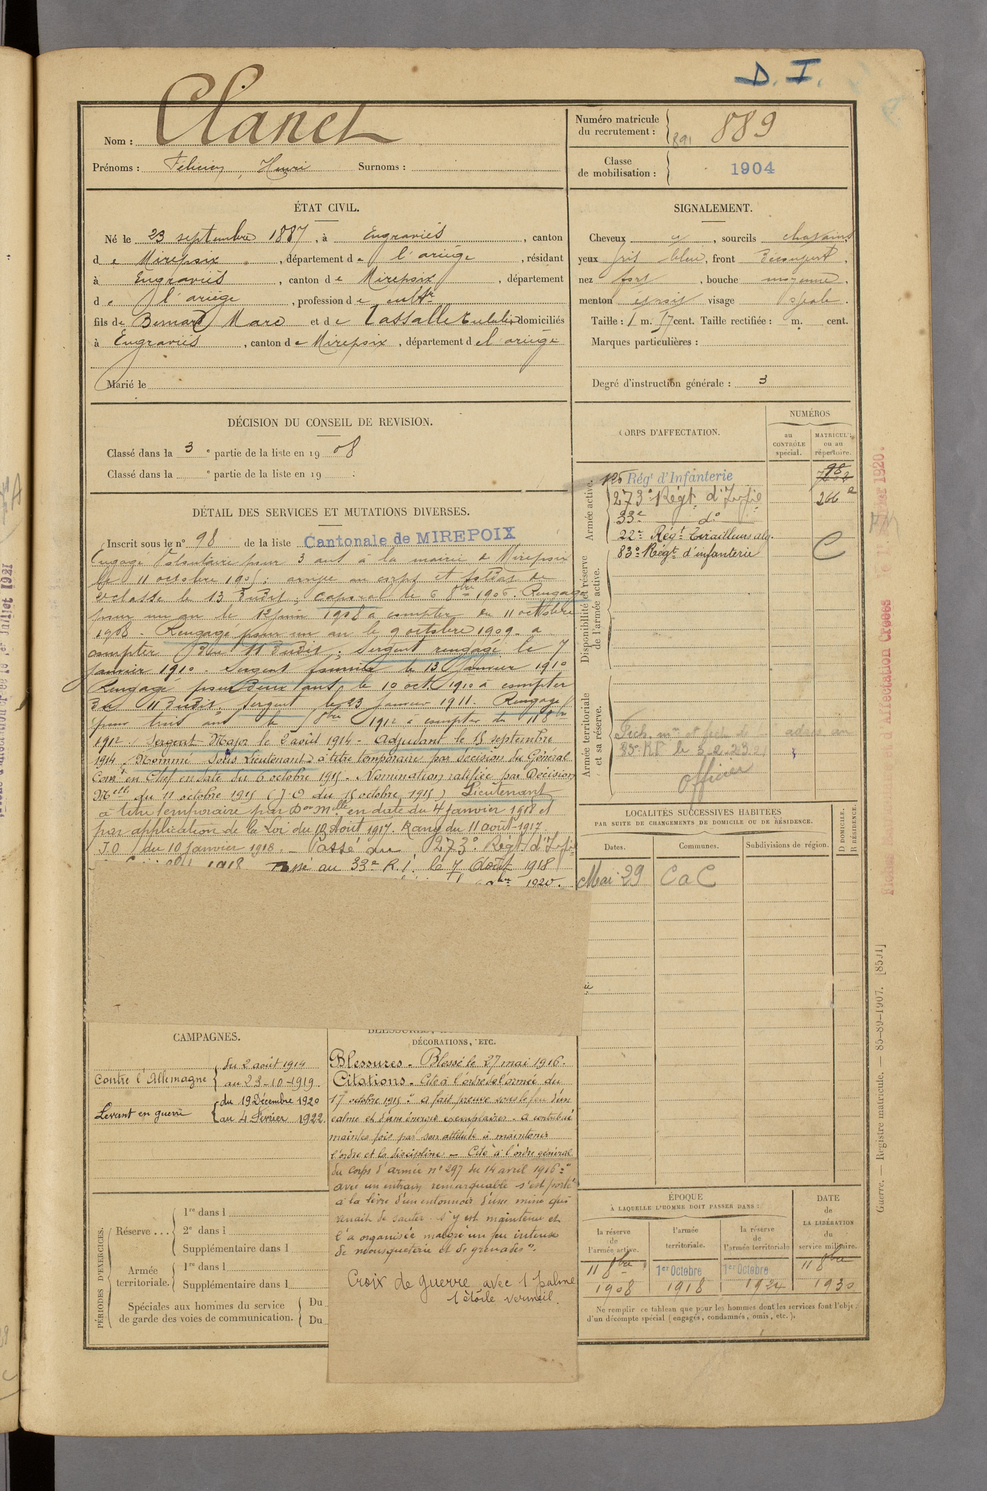 D. I.
Nom : Clanet
Prénoms : Félicien, Henri Surnoms :
Numéro matricule du recrutement : 889
891
Classe de mobilisation : 1904
ÉTAT CIVIL.
Né le 23 septembre 1887, à Engraviés, canton
de Mirepoix, département de l'ariège, résidant
à Engraviés, canton de Mirepoix, département
de l'ariège, profession de cultr
fils de Bernard Marc et de Lassalle Eulalie domiciliés
à Engraviés, canton de Mirepoix, département de l'ariège
Marié le
SIGNALEMENT.
Cheveux et, sourcils chatains
yeux gris bleu, front découvert,
nez fort, bouche moyenne,
menton épais visage ovale.
Taille : 1 m. 57 cent. Taille rectifiée : m. cent.
Marques particulières :
Degré d'instruction générale : 3
DÉCISION DU CONSEIL DE REVISION.
Classé dans la 3e partie de la liste en 1908
Classé dans la e partie de la liste en 19
DÉTAIL DES SERVICES ET MUTATIONS DIVERSES.
Inscrit sous le n° 98 de la liste Cantonale de MIREPOIX
Engagé Volontaire pour 3 ans à la mairie de Mirepoix
le 11 octobre 1905 : arrivé au corps et soldat de
2e classe le 13 dudit. Caporal le 6 8bre 1906. Rengagé
pour un an le 12 juin 1908 à compter du 11 octobre
1908. Rengagé pour un an le 9 octobre 1909 à
compter du 11 dudit. Sergent rengagé le 7
janvier 1910. Sergent fourrier le 13 janvier 1910
Rengagé pour deux ans, le 10 oct. 1910 à compter
du 11 dudit. Sergent le 23 janvier 1911. Rengagé
pour trois ans le 8bre 1912 à compter du 11 8bre
1912. Sergent Major le 2 août 1914 - Adjudant le 15 septembre
1914. Nommé Sous Lieutenant à titre temporaire par décision du Général
Comt en Chef en date du 6 octobre 1915. Nomination ratifiée par Décision
Melle du 11 octobre 1915 (J.O du 15 octobre 1915) Lieutenant
à titre temporaire par Don melle en date du 4 janvier 1918 et
par application de la Loi du 12 août 1917. Rang du 11 août 1917.
J.O du 10 janvier 1918. Passé au 273e Régt d'Infie
1918 Passé au 33e R.I. le 7 Août 1918
1920.
CORPS D'AFFECTATION.
NUMÉROS
au CONTRÔLE spécial.
MATRICULE ou au répertoire.
Armée active.
Rég' d'Infanterie 98
273e Régt d'Infie 266
33e do
22e Régt Tirailleurs alg.
83e Régt d'infanterie
C
Disponibilité et réserve de l'armée active.
Armée territoriale et sa réserve.
officier
LOCALITÉS SUCCESSIVES HABITÉES
PAR SUITE DE CHANGEMENTS DE DOMICILE OU DE RÉSIDENCE.
Dates. Communes. Subdivisions de région. D DOMICILE. R RÉSIDENCE.
Mai 29 CaC
CAMPAGNES.
Contre l'Allemagne du 2 août 1914
au 23-10-1919.
Levant en guerre du 19 Décembre 1920
au 4 Février 1922
BLESSURES,
DÉCORATIONS, ETC.
Blessures. Blessé le 27 mai 1916.
Citations. Cité à l'ordre de l'armée du
17 octobre 1915 : "a fait preuve sous le feu d'un
calme et d'une énergie exemplaires. A contribué
maintes fois par son attitude à maintenir
l'ordre et la discipline. Cité à l'ordre général
du corps d'armée n° 297 du 14 avril 1916 : "
avec un entrain remarquable s'est porté
à la lèvre d'un entonnoir d'une mine qui
venait de sauter. S'y est maintenu et
l'a organisée malgré un feu intense
de mousqueterie et de grenades".
Croix de guerre avec 1 palme
1 étoile vermeil.
PÉRIODES D'EXERCICES.
Réserve... 1re dans l
2e dans l
Supplémentaire dans l
Armée territoriale. 1re dans l
Supplémentaire dans l
Spéciales aux hommes du service de garde des voies de communication. Du
Du
ÉPOQUE
À LAQUELLE L'HOMME DOIT PASSER DANS :
la réserve de l'armée active.
l'armée territoriale.
la réserve de l'armée territoriale
DATE de LA LIBÉRATION du service militaire.
11 8bre 1908
1er Octobre 1918
1er Octobre 1924
11 8bre 1930
Ne remplir ce tableau que pour les hommes dont les services font l'objet
d'un décompte spécial (engagés, condamnés, omis, etc.).
Guerre. — Registre matricule. — 85-89-1907. [8501]